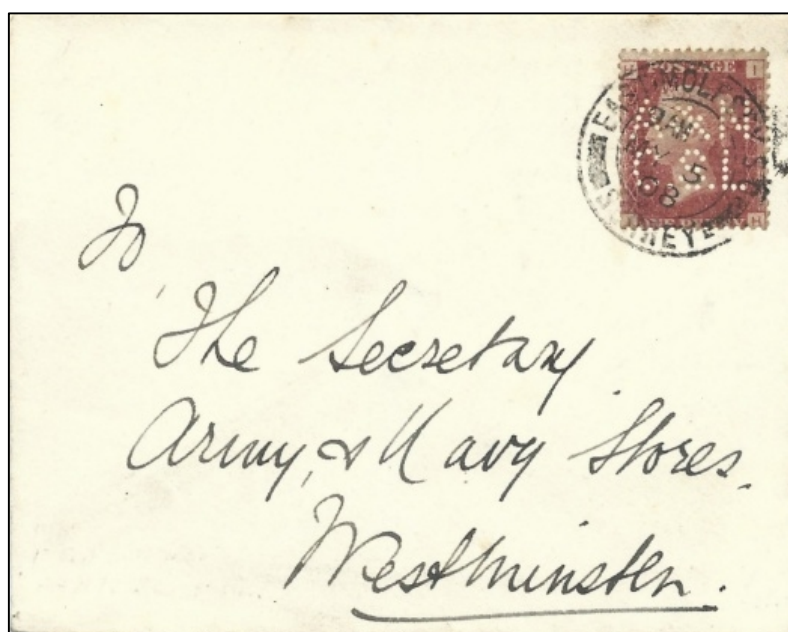 POSTAGE
EAST MOLESEY S.O.
MY 5
08
SURREY
To
The Secretary
Army & Navy Stores.
Westminster.